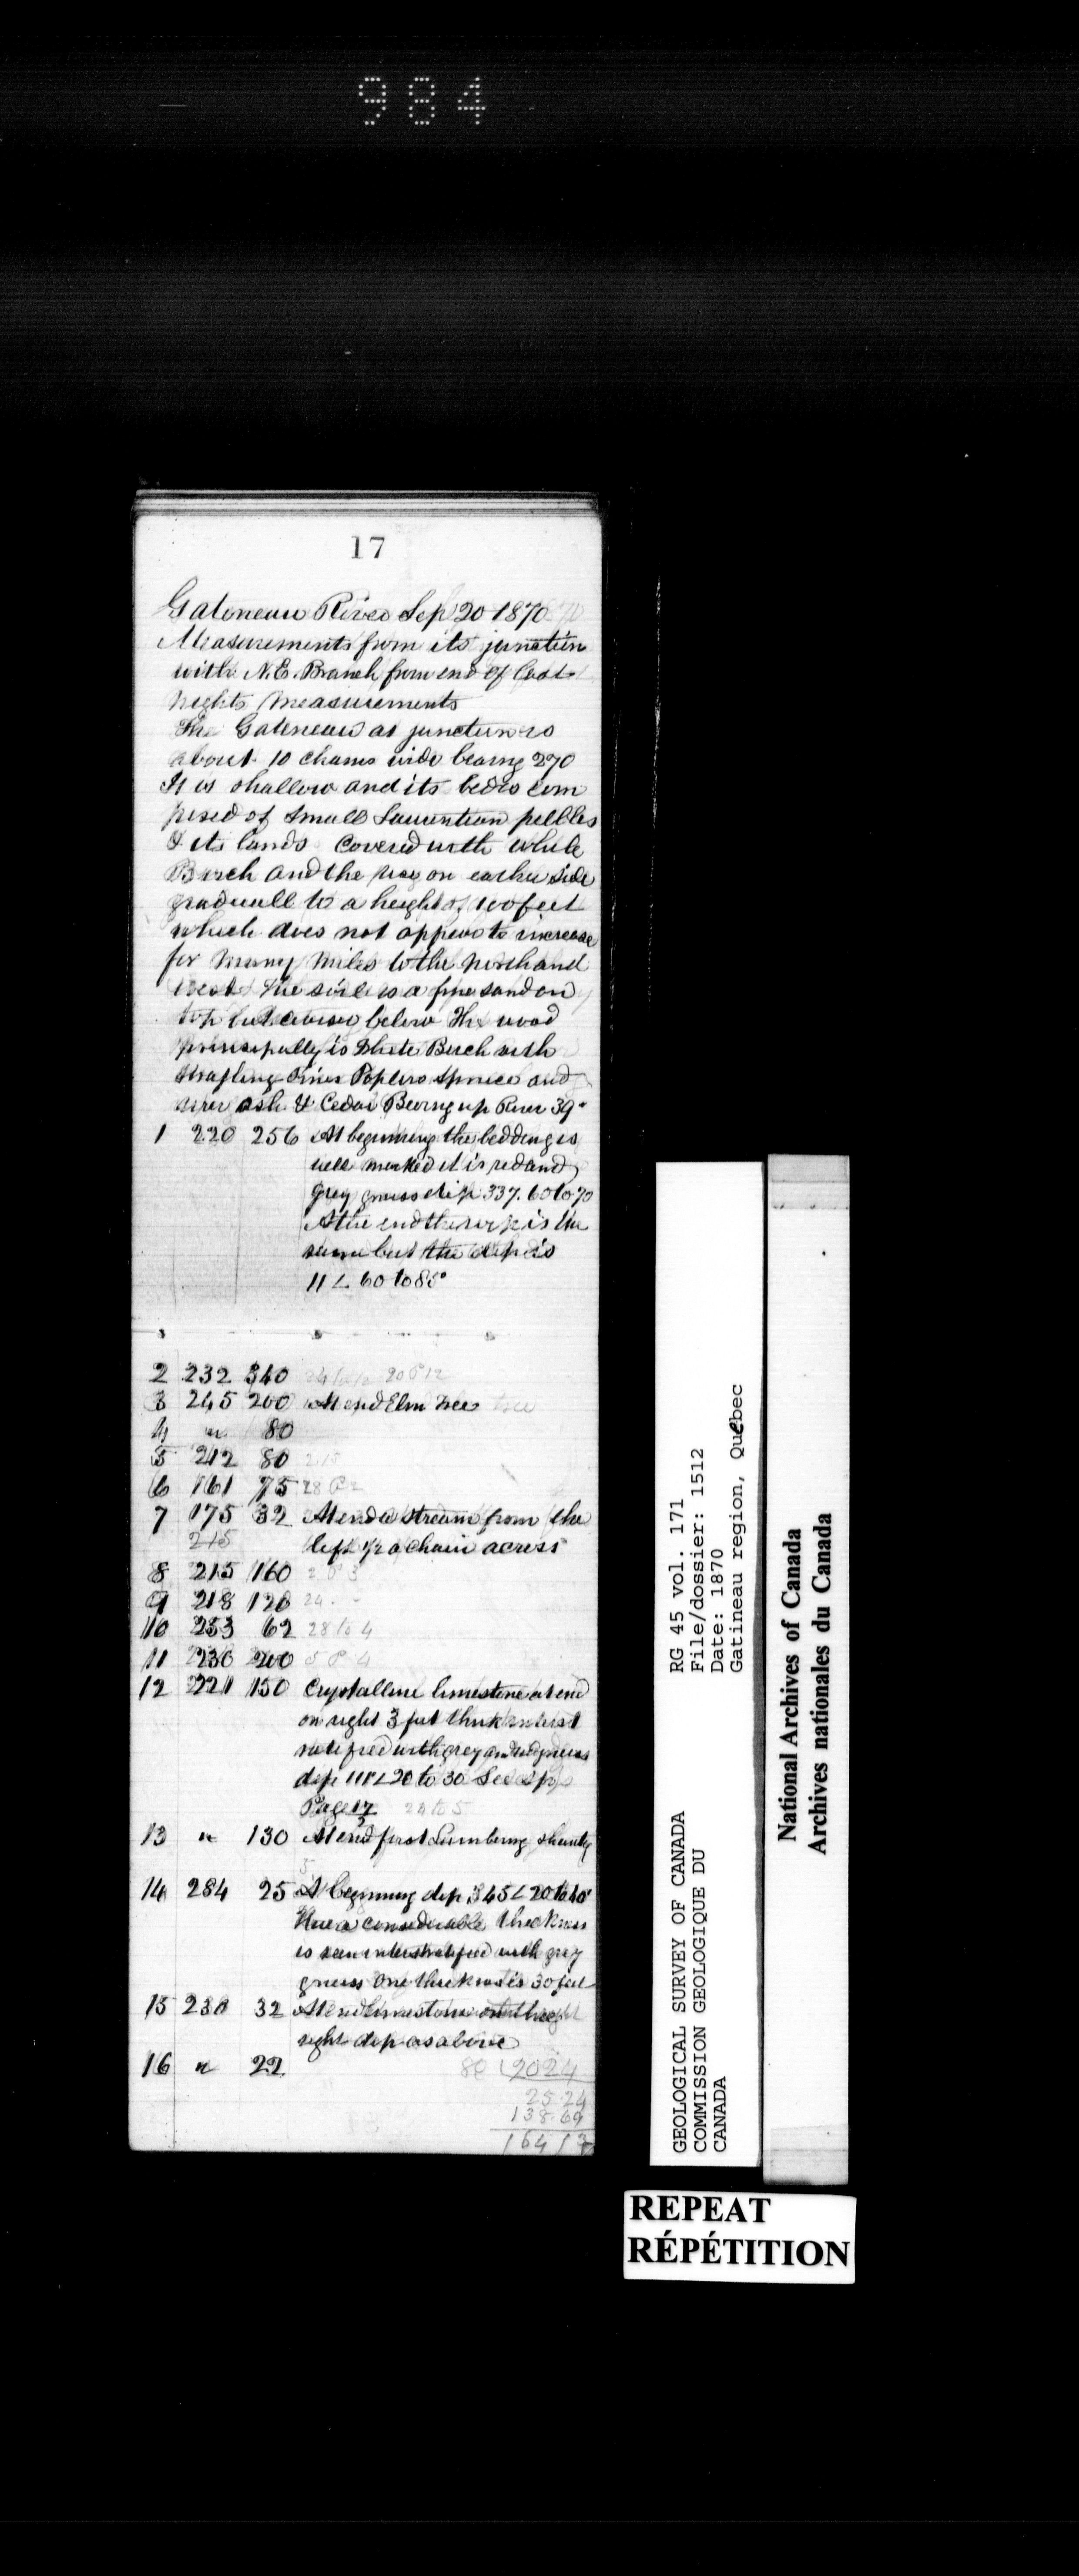 984
17
Gateneau River Sep 20 1870
Measurements from its junction
with N.E. Branch from end of Last
nights measurements
The Gateneau at junction is
about 10 chains wide bearing 270
It is shallow and its bed is com
posed of small Laurentian pebbles
& its lands covered with white
Birch and the on either side
graduall to a height of 100 feet
which does not appear to increase
for many miles to the north and
West The soil is a fine sand on
top but below The wood
principally is White Birch with
Pines Poplars Spruce and
ash & Cedar Bearing up River 39°
1 220 256 At beginning the bedding is
well marked it is red and
grey gneiss dip 337. 60 to 70
At the end the is the
same but the dip is
11 ∠ 60 to 85°
2 232 340
3 245 200 At end Elm tree
4 " 80
5 212 80
6 161 75
7 175 32 At end a stream from the
215 left 1/2 a chain across
8 215 160
9 218 120
10 253 62 28 to 4
11 230 200
12 221 150 Crystalline limestone at end
on right 3 feet thick interst
ratified with grey and red gneiss
dip 111 ∠ 20 to 30 See
Page 17 24 to 5
13 " 130 At end first Lumbering shanty
14 284 25 At beginning dip 345 ∠ 20 to 40°
Here a considerable thickness
is seen interstratified with grey
gneiss One thickness is 30 feet
15 230 32 At end limestone on the
right dip as above
16 " 22
80 2024
25.24
138.69
164 13
GEOLOGICAL SURVEY OF CANADA
COMMISSION GEOLOGIQUE DU
CANADA
RG 45 vol. 171
File/dossier: 1512
Date: 1870
Gatineau region, Quebec
National Archives of Canada
Archives nationales du Canada
REPEAT
RÉPÉTITION